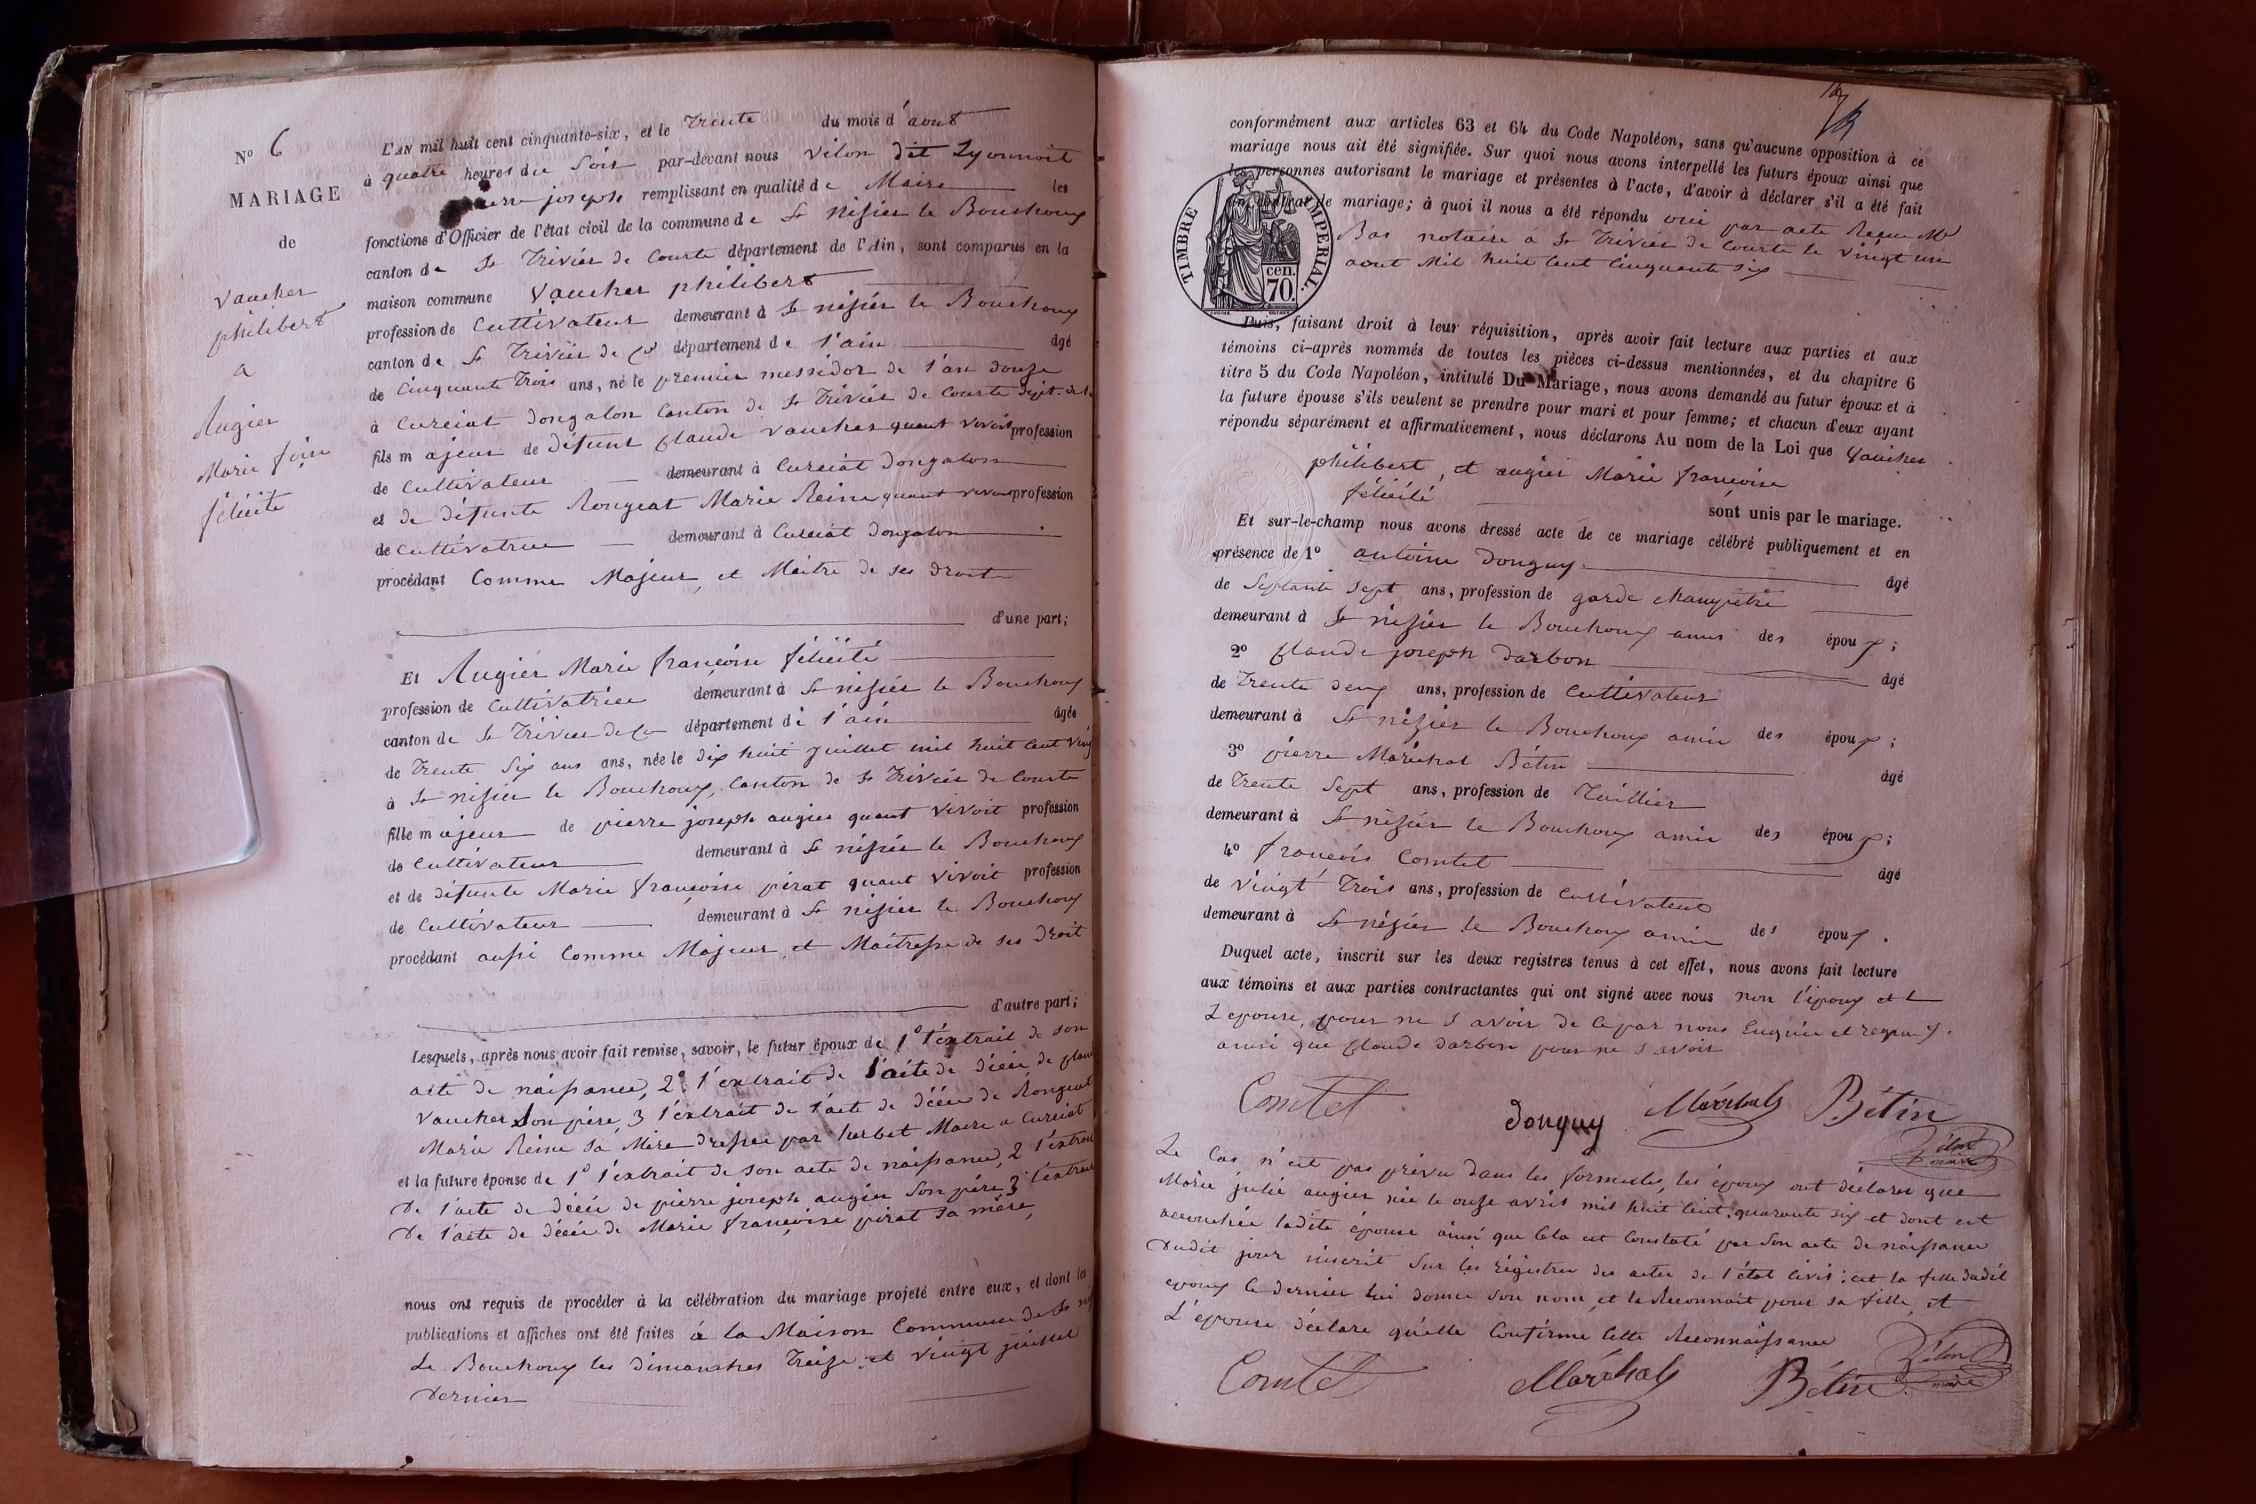 N° 6
MARIAGE
de
Vaucher
philibert
a
Augier
Marie foise
félicité
L'AN mil huit cent cinquante-six, et le Trente du mois d'aout
à quatre heures du Soir par-devant nous Vélon dit Lyonnoit
pierre joseph remplissant en qualité de Maire les
fonctions d'Officier de l'état civil de la commune de St nisier le Bouchoux
canton de St Trivier de Courte département de l'Ain, sont comparus en la
maison commune Vaucher philibert
profession de Cultivateur demeurant à St nisier le Bouchoux
canton de St Trivier de Cs département de l'ain âgé
de Cinquante Trois ans, né le premier messidor de l'an douze
à Curciat dongalon Canton de St Trivier de Courte dept. de l.
fils majeur de défunt Claude Vaucher quant vivoit profession
de Cultivateur demeurant à Curciat Dongalon
et de défunte Rongeat Marie Reine quant vivoit profession
de Cultivatrice demeurant à Curciat Dongalon
procédant Comme Majeur, et Maitre de ses droit
d'une part;
Et Augier Marie françoise félicité
profession de Cultivatrice demeurant à St nisier le Bouchoux
canton de St Trivier de Co département de l'ain âgée
de Trente Six ans ans, née le dix huit juillet mil huit cent ving
à St nisier le Bouchoux, Canton de St Trivier de Courte
fille majeur de pierre joseph augier quant vivoit profession
de Cultivateur demeurant à St nisier le Bouchoux
et de défunte Marie françoise pirat quant vivoit profession
de Cultivateur demeurant à St nisier le Bouchoux
procédant aussi Comme Majeur, et Maîtresse de ses droit
d'autre part;
Lesquels, après nous avoir fait remise, savoir, le futur époux de 1° l'extrait de son
acte de naissance, 2° l'extrait de l'acte de décée de Claude
Vaucher Son père, 3 l'extrait de l'acte de décée de Rongeat
Marie Reine sa Mère dressée par herbet Maire a Curciat
et la future épouse de 1° l'extrait de son acte de naissance, 2 l'extrait
De l'acte de décée de pierre joseph augier Son père, 3° l'extrait
De l'acte de décée de Marie françoise pirat sa mère,
nous ont requis de procéder à la célébration du mariage projeté entre eux, et dont les
publications et affiches ont été faites à la Maison Commune de St nis
Le Bouchoux les dimanches Treize et vingt juillet
dernier
conformément aux articles 63 et 64 du Code Napoléon, sans qu'aucune opposition à ce
mariage nous ait été signifiée. Sur quoi nous avons interpellé les futurs époux ainsi que
les personnes autorisant le mariage et présentes à l'acte, d'avoir à déclarer s'il a été fait
un contrat de mariage; à quoi il nous a été répondu oui par acte Reçu Me
Bas notaire à St Trivier de Courte le vingt un
aout Mil huit Cent Cinquante six
TIMBRE IMPERIAL.
cen.
70.
Puis, faisant droit à leur réquisition, après avoir fait lecture aux parties et aux
témoins ci-après nommés de toutes les pièces ci-dessus mentionnées, et du chapitre 6
titre 5 du Code Napoléon, intitulé Du Mariage, nous avons demandé au futur époux et à
la future épouse s'ils veulent se prendre pour mari et pour femme; et chacun d'eux ayant
répondu séparément et affirmativement, nous déclarons Au nom de la Loi que Vaucher
philibert, et augier Marie françoise
félicité
sont unis par le mariage.
Et sur-le-champ nous avons dressé acte de ce mariage célébré publiquement et en
présence de 1° antoine Donguy âgé
de Septante Sept ans, profession de garde champêtre
demeurant à St nisier le Bouchoux amis des époux;
2° Claude joseph Darbon âgé
de Trente deux ans, profession de Cultivateur
demeurant à St nisier le Bouchoux amie des époux;
3° pierre Maréchal Bétin âgé
de Trente Sept ans, profession de Tuillier
demeurant à St nisier le Bouchoux amie des époux;
4° françois Comtet âgé
de Vingt Trois ans, profession de Cultivateur
demeurant à St nisier le Bouchoux amie des époux.
Duquel acte, inscrit sur les deux registres tenus à cet effet, nous avons fait lecture
aux témoins et aux parties contractantes qui ont signé avec nous non l'époux et L
Lepouse, pour ne s avoir de Ce par nous Enquie et requis.
ainsi que Claude Darbon pour ne s avoir
Comtet donguy Maréchal Bétin
Vélon maire
Le Cas n'est pas prévu dans les formules, les époux ont déclaré que
Marie julie augier née le onze avril mil huit Cent quarante six et dont est
accouchée ladite épouse ainsi que Cela est Constaté par Son acte de naissance
dudit jour inscrit Sur les régistre des actes de l'état Civil: est la fille dudit
epoux Ce dernier lui donne Son nom, et la Reconnait pour sa fille, et
L'épouse déclare qu'elle Confirme Cette Reconnaissance
Comtet Maréchal Bétin Vélon maire